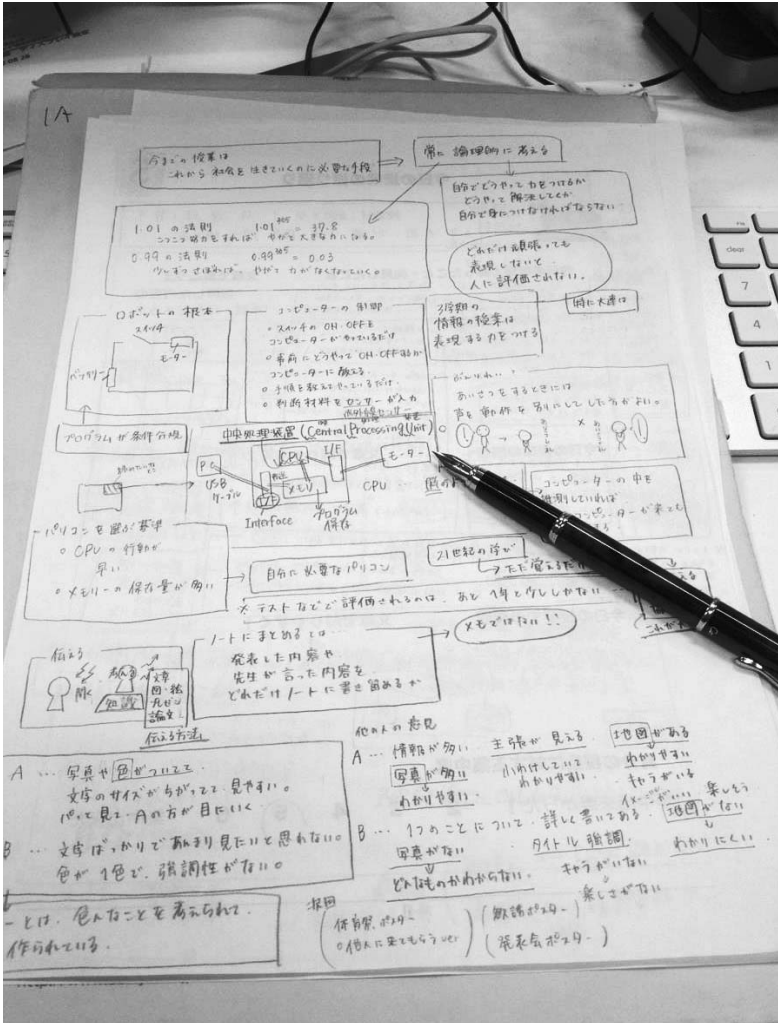 1A
今までの授業は
これから社会を生きていくのに必要な手段
常に論理的に考える
自分でどうやって力をつけるか
どうやって解決してくか
自分で身につけなければならない
1.01 の法則 1.01^365 = 37.8
コツコツ努力をすれば やがて大きな力になる。
0.99 の法則 0.99^365 = 0.03
少しずつさぼれば、やがて力がなくなっていく。
どれだけ頑張っても
表現しないと
人に評価されない。
3学期の
情報の授業は
表現する力をつける
ロボットの根本
スイッチ
モーター
バッテリー
コンピューターの制御
○ スイッチの ON・OFFを
コンピューターがやっているだけ
○ 事前にどうやってON・OFFするか
コンピューターに教える
○ 手順を教えてやっているだけ。
○ 判断材料をセンサーが入力
赤外線センサー
あいさつをするときには
声と動作を別にしてした方がよい。
プログラムが条件分岐
中央処理装置 (Central Processing Unit)
P
USB
ケーブル
CPU
メモリ
I/F
I/F
Interface
プログラム
保存
モーター
CPU
コンピューターの中を
推測していれば
コンピューターが来ても
パソコンを選ぶ基準
○ CPUの行動が
早い
○ メモリーの保存量が多い
自分に必要なパソコン
21世紀の学び
ただ覚えるだけ
※ テストなどで評価されるのは、あと1年と少ししかない
伝える
知識
文章
図・絵
プレゼン
論文
伝える方法
ノートにまとめるとは…
発表した内容や
先生が言った内容を
どれだけノートに書き留めるか
メモではない!!
A … 写真や色がついてて
文字のサイズがちがってて、見やすい。
パッと見て、Aの方が目にいく
B … 文字ばっかりであんまり見たいと思れない。
色が1色で、強調性がない。
ーとは、色んなことを考えられて
作られている。
他の人の意見
A … 情報が多い 主張が見える 地図がある
写真が多い 小わけしていて わかりやすい
わかりやすい わかりやすい キャラがいる
イメージがいい 楽しそう
B … 1つのことについて、詳しく書いてある 地図がない
写真がない タイトル強調 わかりにくい
どんなものかわからない キャラがいない
楽しさがない
次回
体育祭ポスター
○他人に来てもらうver
敬語ポスター
発表会ポスター